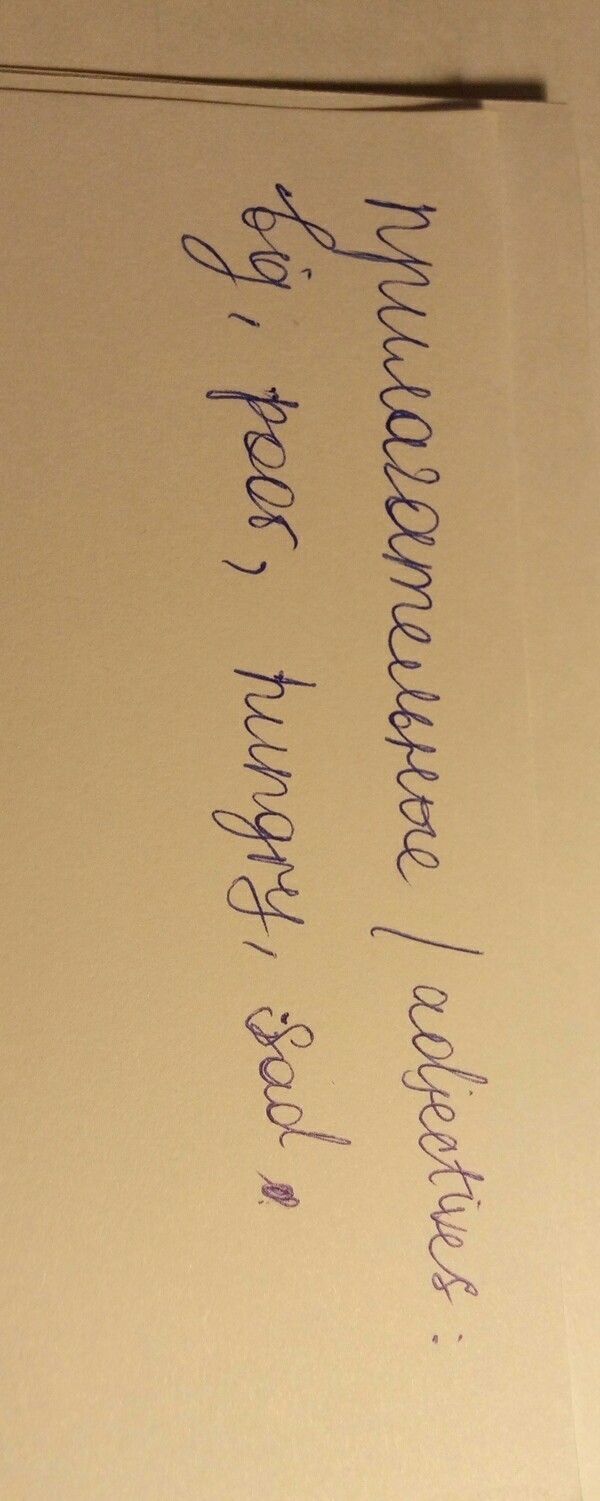 прилагательные / adjectives :
big, poor, hungry, sad.